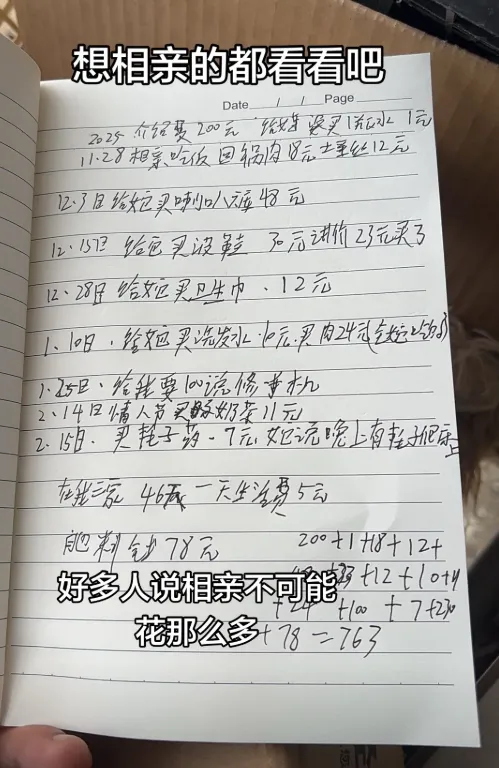 想相亲的都看看吧
Date / / Page
2024 介绍费200元 给媒婆买1瓶水 1元
11.28相亲吃饭回锅肉18元土豆丝12元
12.3日给她买喇叭裤48元
12.15日 给她买波鞋 30元讲价23元买了
12.28日给她买卫生巾、12元
1.10日、给她买洗发水、10元.买肉24元(全她吃的)
1.25日、给我要100说修手机
2.14日情人节买奶茶11元
2.15日、买耗子药-7元 她说晚上有耗子爬床
在我家 46天一天生活费5元
肥料钱78元
200+1+18+12+
+23+12+10+11
好多人说相亲不可能
+24 +100 +7+230
花那么多
+78=763